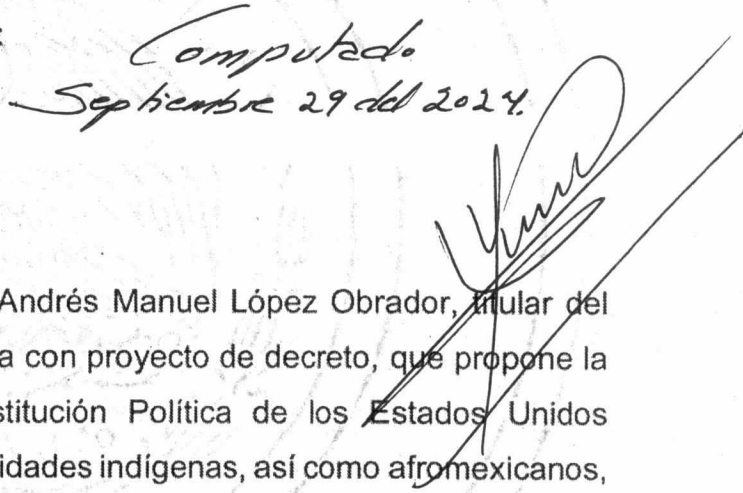 Computado
Septiembre 29 del 2024.
Andrés Manuel López Obrador, titular del
a con proyecto de decreto, que propone la
stitución Política de los Estados Unidos
idades indígenas, así como afromexicanos,